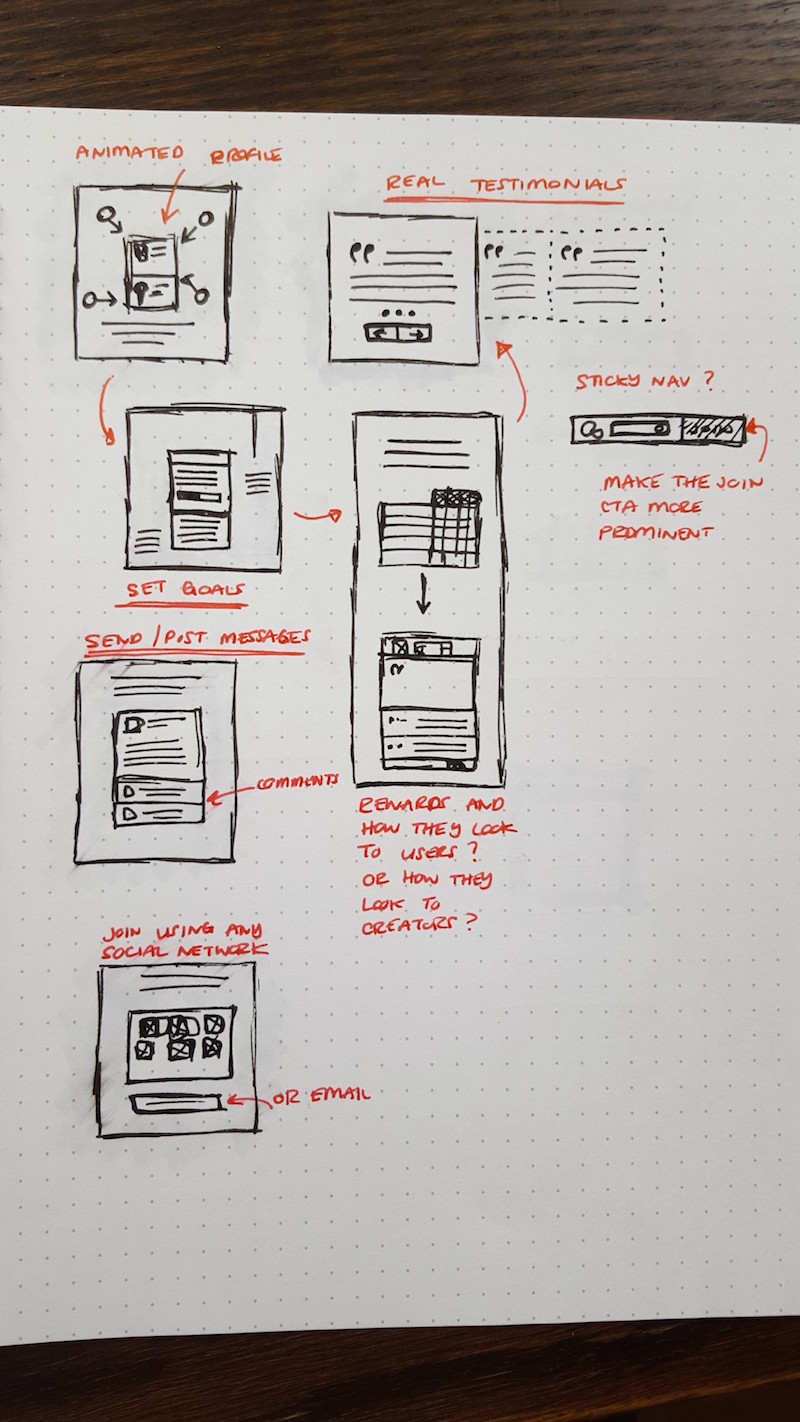 ANIMATED PROFILE
REAL TESTIMONIALS
STICKY NAV ?
MAKE THE JOIN
CTA MORE
PROMINENT
SET GOALS
SEND / POST MESSAGES
COMMENTS
REWARDS AND
HOW THEY LOOK
TO USERS ?
OR HOW THEY
LOOK TO
CREATORS ?
JOIN USING ANY
SOCIAL NETWORK
OR EMAIL